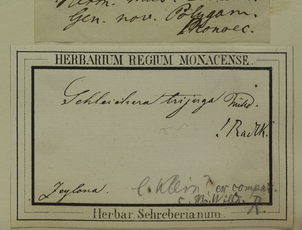 Gen. nov. Polygam.
Monoec.
HERBARIUM REGIUM MONACENSE.
Schleichera trijuga Willd.
! Radlk.
Zeylona.
C. Klein ex compar.
c. Hb. Willd. R.
Herbar. Schreberianum.